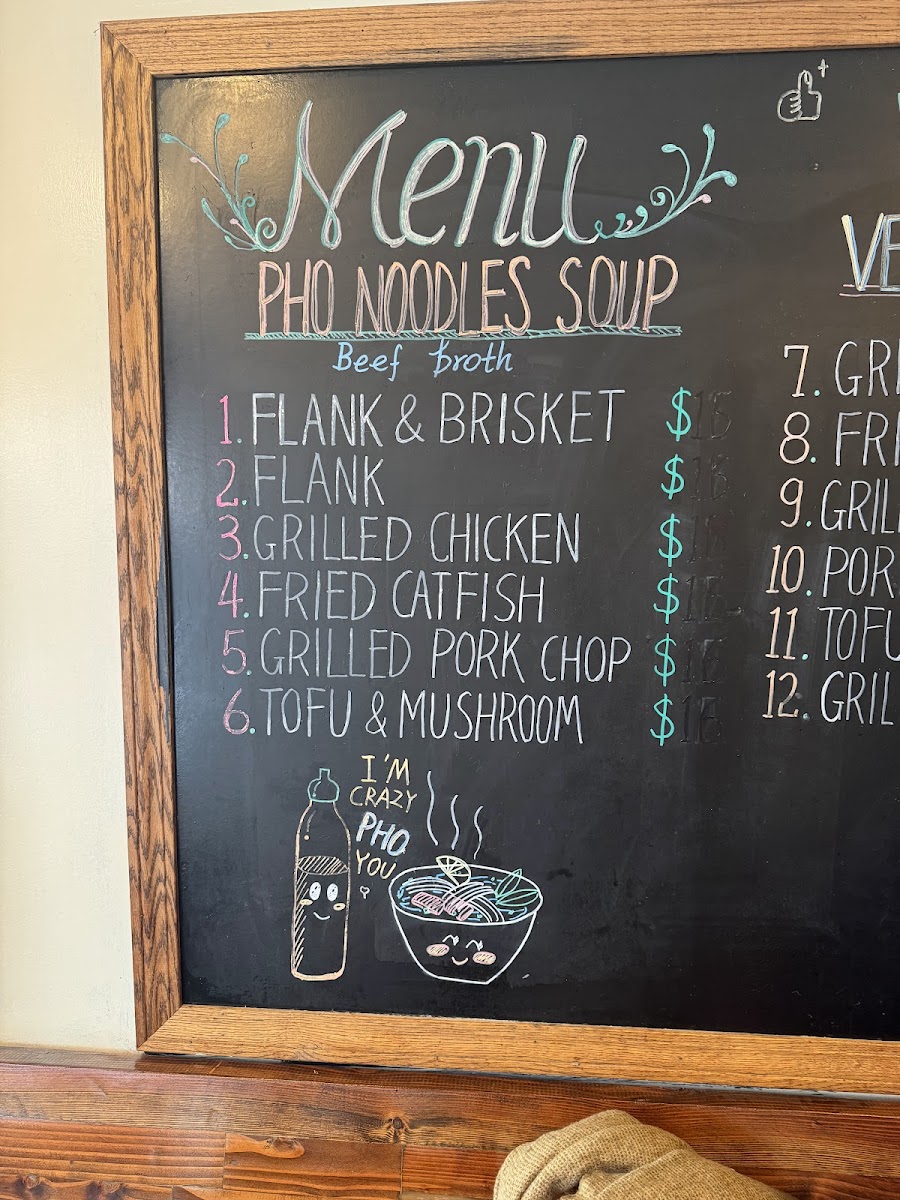 Menu
PHO NOODLES SOUP
Beef broth
1. FLANK & BRISKET $
2. FLANK $
3. GRILLED CHICKEN $
4. FRIED CATFISH $
5. GRILLED PORK CHOP $
6. TOFU & MUSHROOM $
I'M
CRAZY
PHO
YOU
VE
7. GRI
8. FRI
9. GRIL
10. POR
11. TOFU
12. GRIL